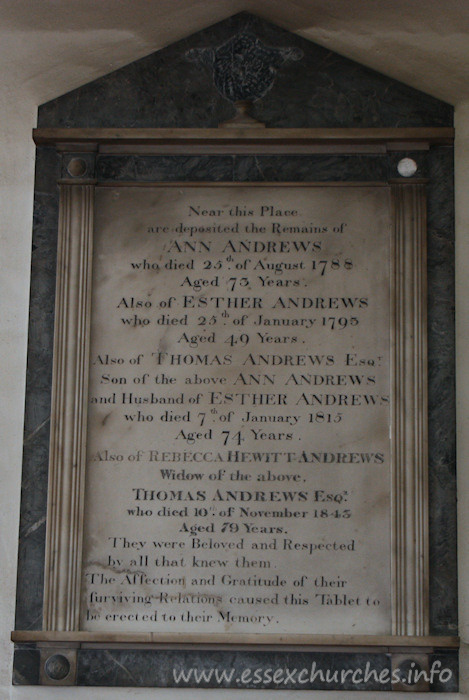 Near this Place
are deposited the Remains of
ANN ANDREWS
who died 25th of August 1788
Aged 75 Years.
Also of ESTHER ANDREWS
who died 25th of January 1795
Aged 49 Years.
Also of THOMAS ANDREWS Esqr.
Son of the above ANN ANDREWS
and Husband of ESTHER ANDREWS
who died 7th of January 1815
Aged 74 Years.
Also of REBECCA HEWITT ANDREWS
Widow of the above,
THOMAS ANDREWS Esqr.
who died 10th of November 1843
Aged 79 Years.
They were Beloved and Respected
by all that knew them
The Affection and Gratitude of their
surviving Relations caused this Tablet to
be erected to their Memory.
www.essexchurches.info